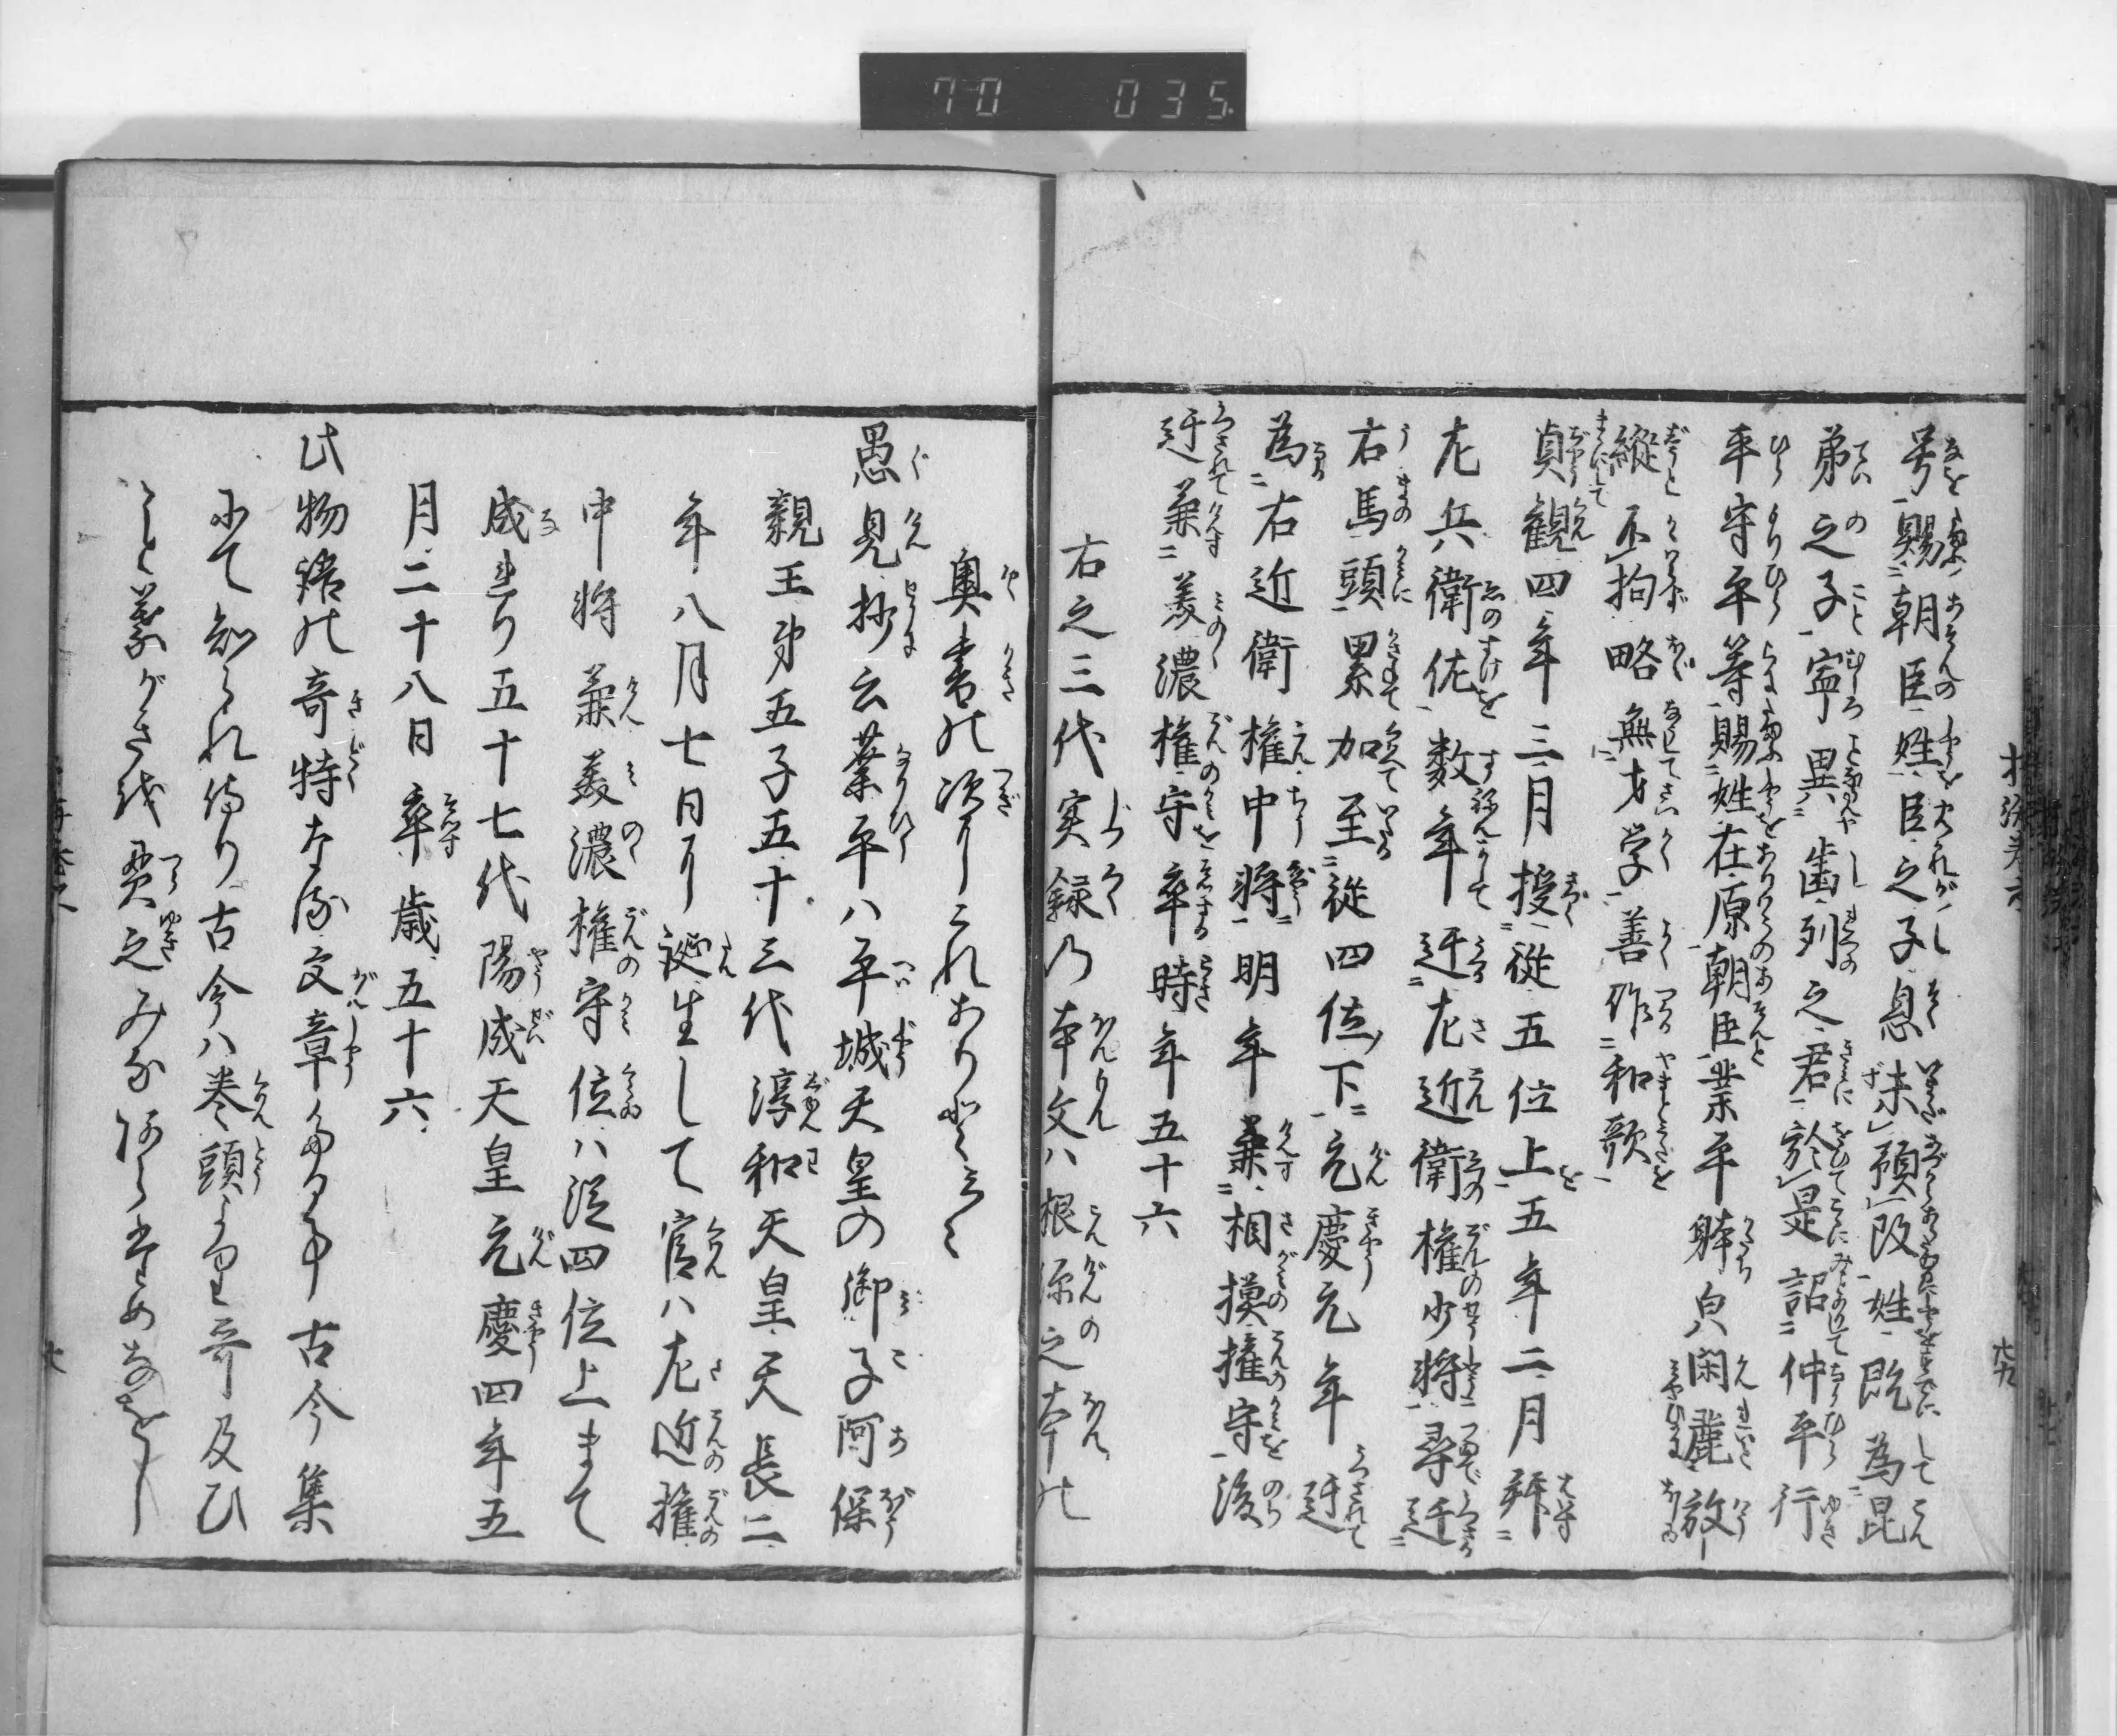 70 035
号賜朝臣姓臣之子息未預改姓既為昆
弟之子寧異歯列之君於是詔仲平行
平守平等賜姓在原朝臣業平躰皃閑麗放
縦不拘略無才学善作和歌
貞観四年三月授従五位上五年二月拜
左兵衛佐数年迁左近衛権少将尋迁
右馬頭累加至従四位下元慶元年迁
為右近衛権中将明年兼相摸権守後
迁兼美濃権守卒時年五十六
右之三代実録乃本文ハ根源之本の
奥書の次にこれあり
愚見抄云業平ハ平城天皇の御子阿保
親王第五子五十三代淳和天皇天長二
年八月七日に誕生して官ハ左近権
中将兼美濃権守位ハ従四位上まて
成れり五十七代陽成天皇元慶四年五
月二十八日卒歳五十六
此物語の奇特なる文章たる事古今集
にて知られ侍り古今ハ巻頭より哥及ひ
貫之みな